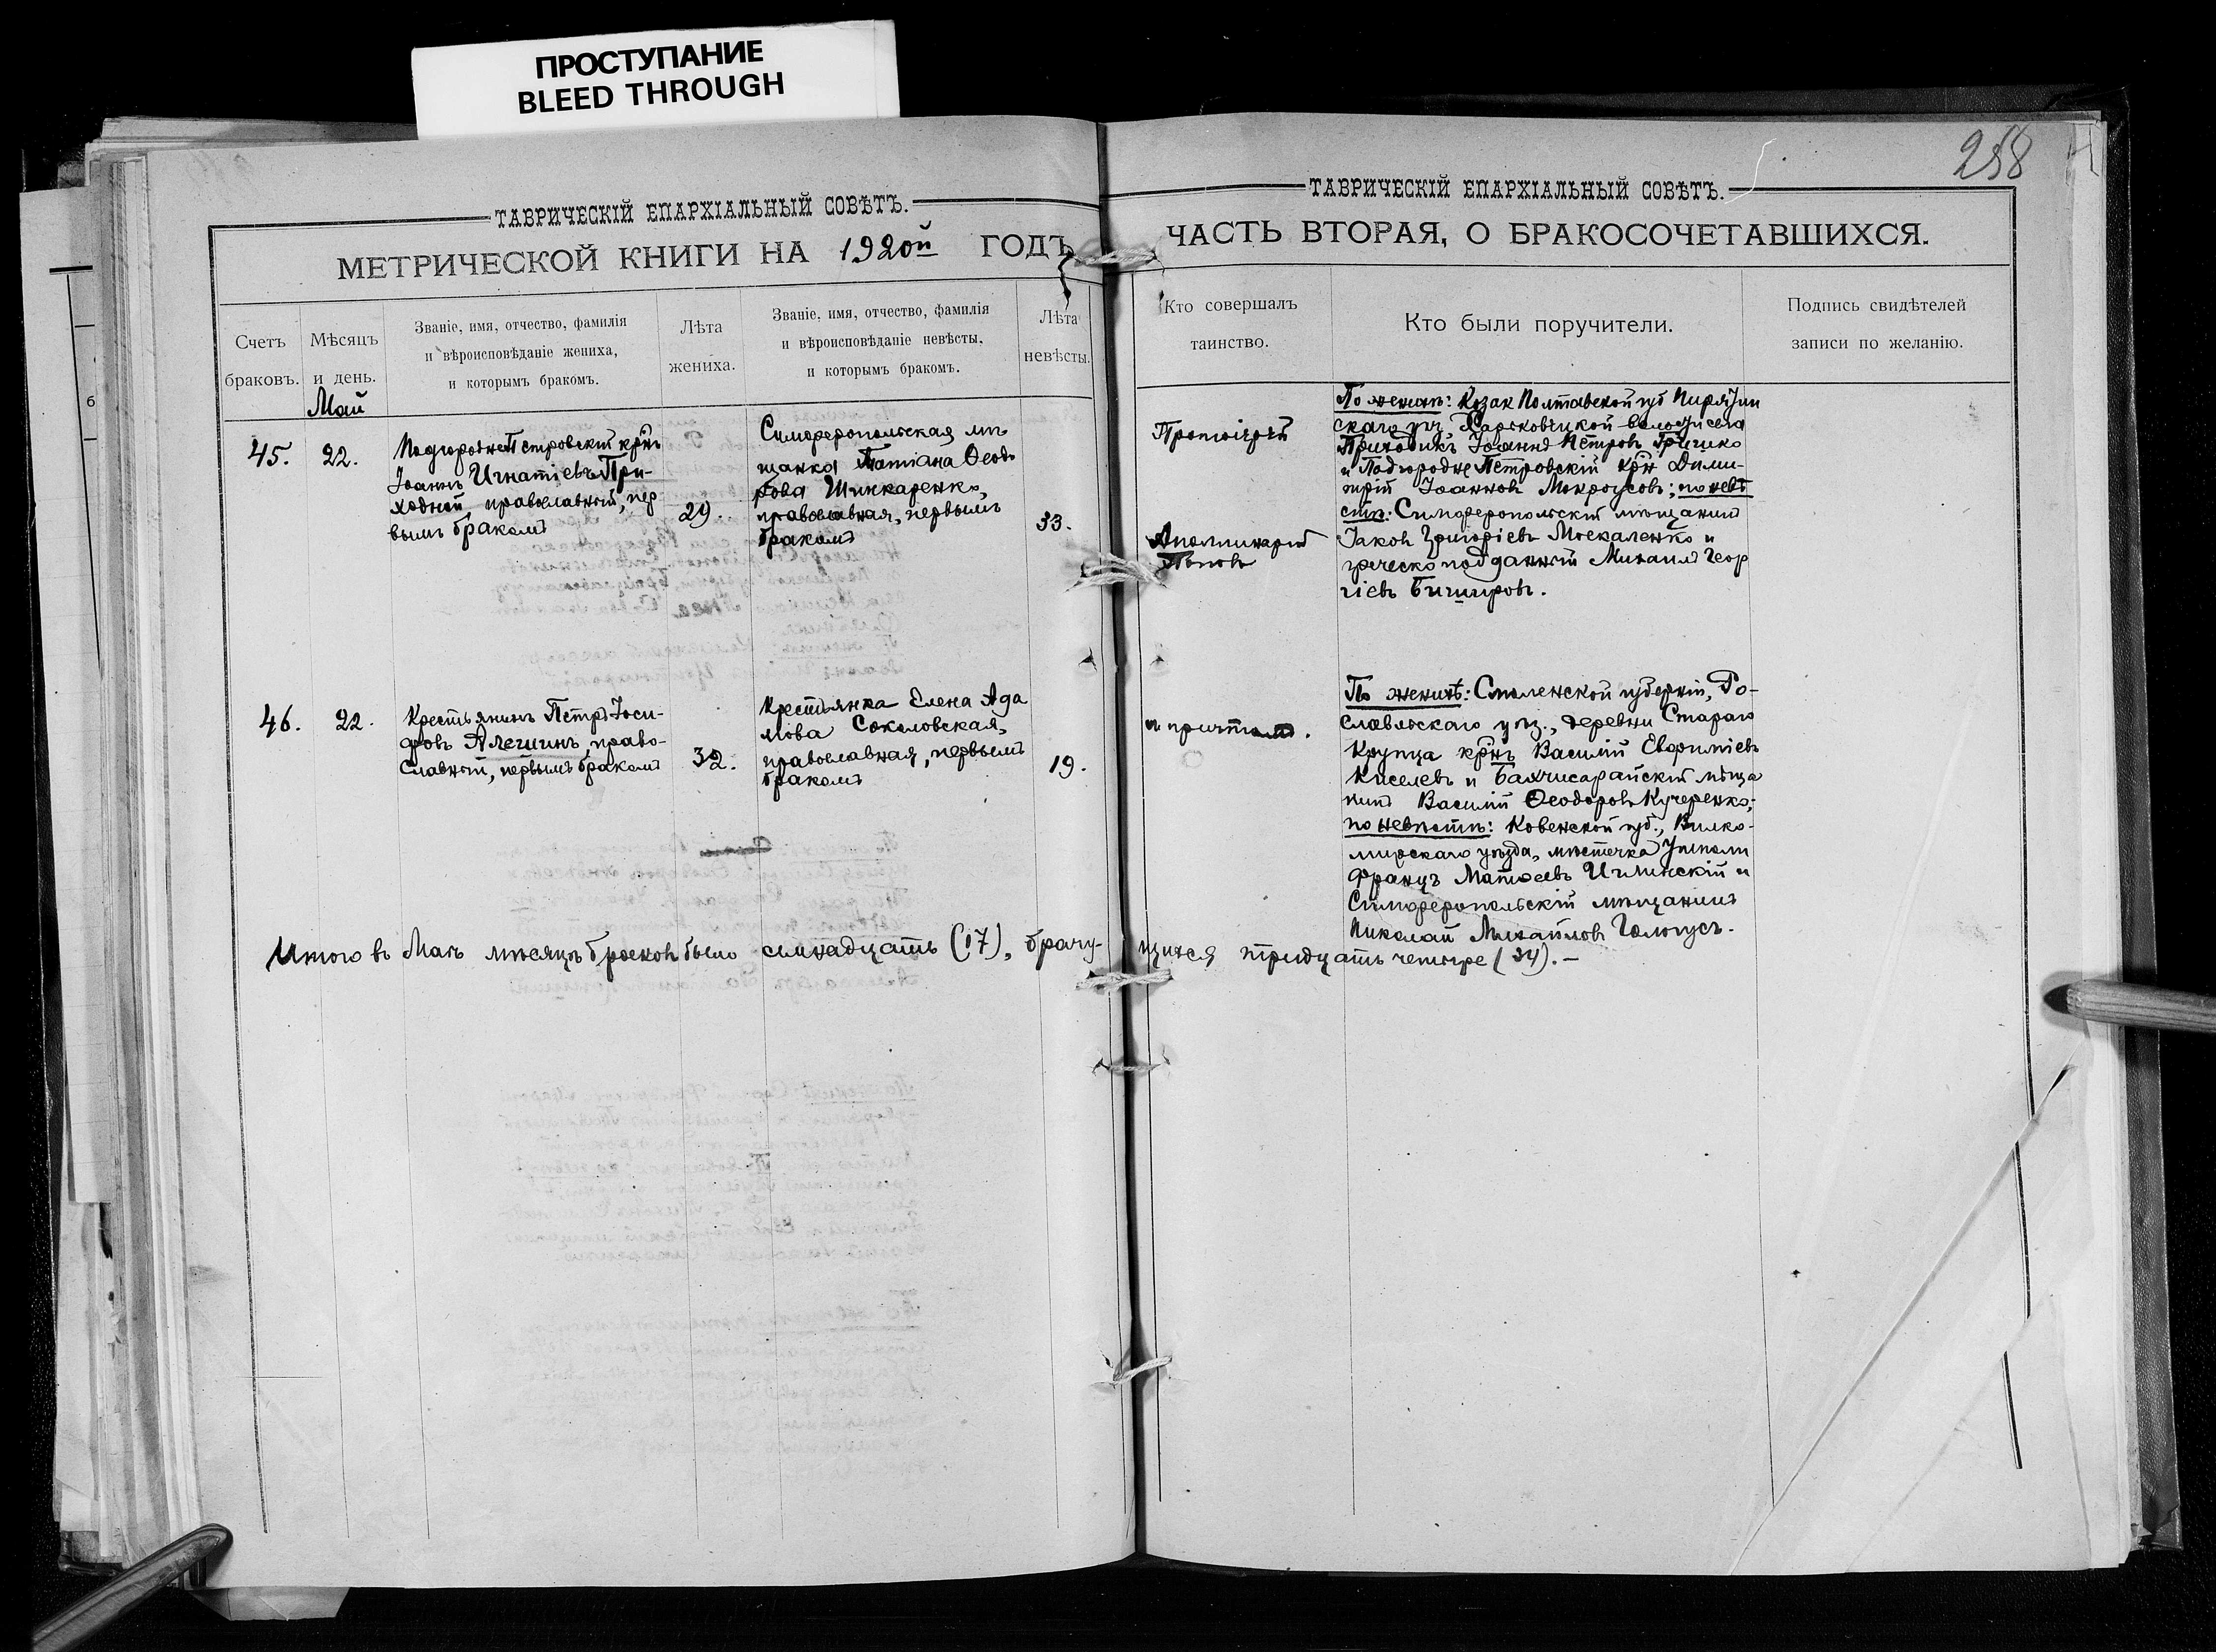 ПРОСТУПАНИЕ
BLEED THROUGH
258
ТАВРИЧЕСКІЙ ЕПАРХІАЛЬНЫЙ СОВѢТЪ.
МЕТРИЧЕСКОЙ КНИГИ НА 1920ой ГОДЪ
Счетъ
браковъ.
Мѣсяцъ
и день.
Званіе, имя, отчество, фамилія
и вѣроисповѣданіе жениха,
и которымъ бракомъ.
Лѣта
жениха.
Званіе, имя, отчество, фамилія
и вѣроисповѣданіе невѣсты,
и которымъ бракомъ.
Лѣта
невѣсты.
Май
45.
22.
Подгородне Петровскій крнъ
Іоаннъ Игнатіевъ При-
ходной православный, пер
вымъ бракомъ
29.
Симферопольская мѣ
щанка Татіана Ѳеодо
рова Шинкаренко,
православная, первымъ
бракомъ
33.
46.
22.
Крестьянинъ Петръ Іоси-
фовъ Алешинъ, право-
славный, первымъ бракомъ
32.
Крестьянка Елена Ада
мова Соколовская,
православная, первымъ
бракомъ
19.
Итого въ Маѣ мѣсяцѣ браковъ было семнадцать (17), брачу-
ТАВРИЧЕСКІЙ ЕПАРХІАЛЬНЫЙ СОВѢТЪ.
ЧАСТЬ ВТОРАЯ, О БРАКОСОЧЕТАВШИХСЯ.
Кто совершалъ
таинство.
Кто были поручители.
Подпись свидѣтелей
записи по желанію.
Протоіерей
Аполлинарій
Поповъ
и причтомъ.
По женихѣ: Козак Полтавской губ Пирятин
скаго уѣз, Харьковецкой села
Приходикъ Іоаннъ Петровъ Гричико
и Подгородне Петровскій крн Дими-
трій Іоанновъ Мокроусовъ; по невѣ
стѣ: Симферопольскій мѣщанинъ
Іаковъ Григоріевъ Москаленко и
греческоподданный Михаилъ Геор
гіевъ Бичировъ.
По женихѣ: Смоленской губерніи, Ро-
славльскаго уѣз., деревни Стараго
Крупца крнъ Василій Евфиміевъ
Киселевъ и Бахчисарайскій мѣща
нинъ Василій Ѳеодоровъ Кучеренко;
по невѣстѣ: Ковенской губ., Вилко-
мирскаго уѣзда, мѣстечка Ушполи
Францъ Матѳеевъ Ичминскій и
Симферопольскій мѣщанинъ
Николай Михайловъ Гологусъ.
щихся тридцать четыре (34). –